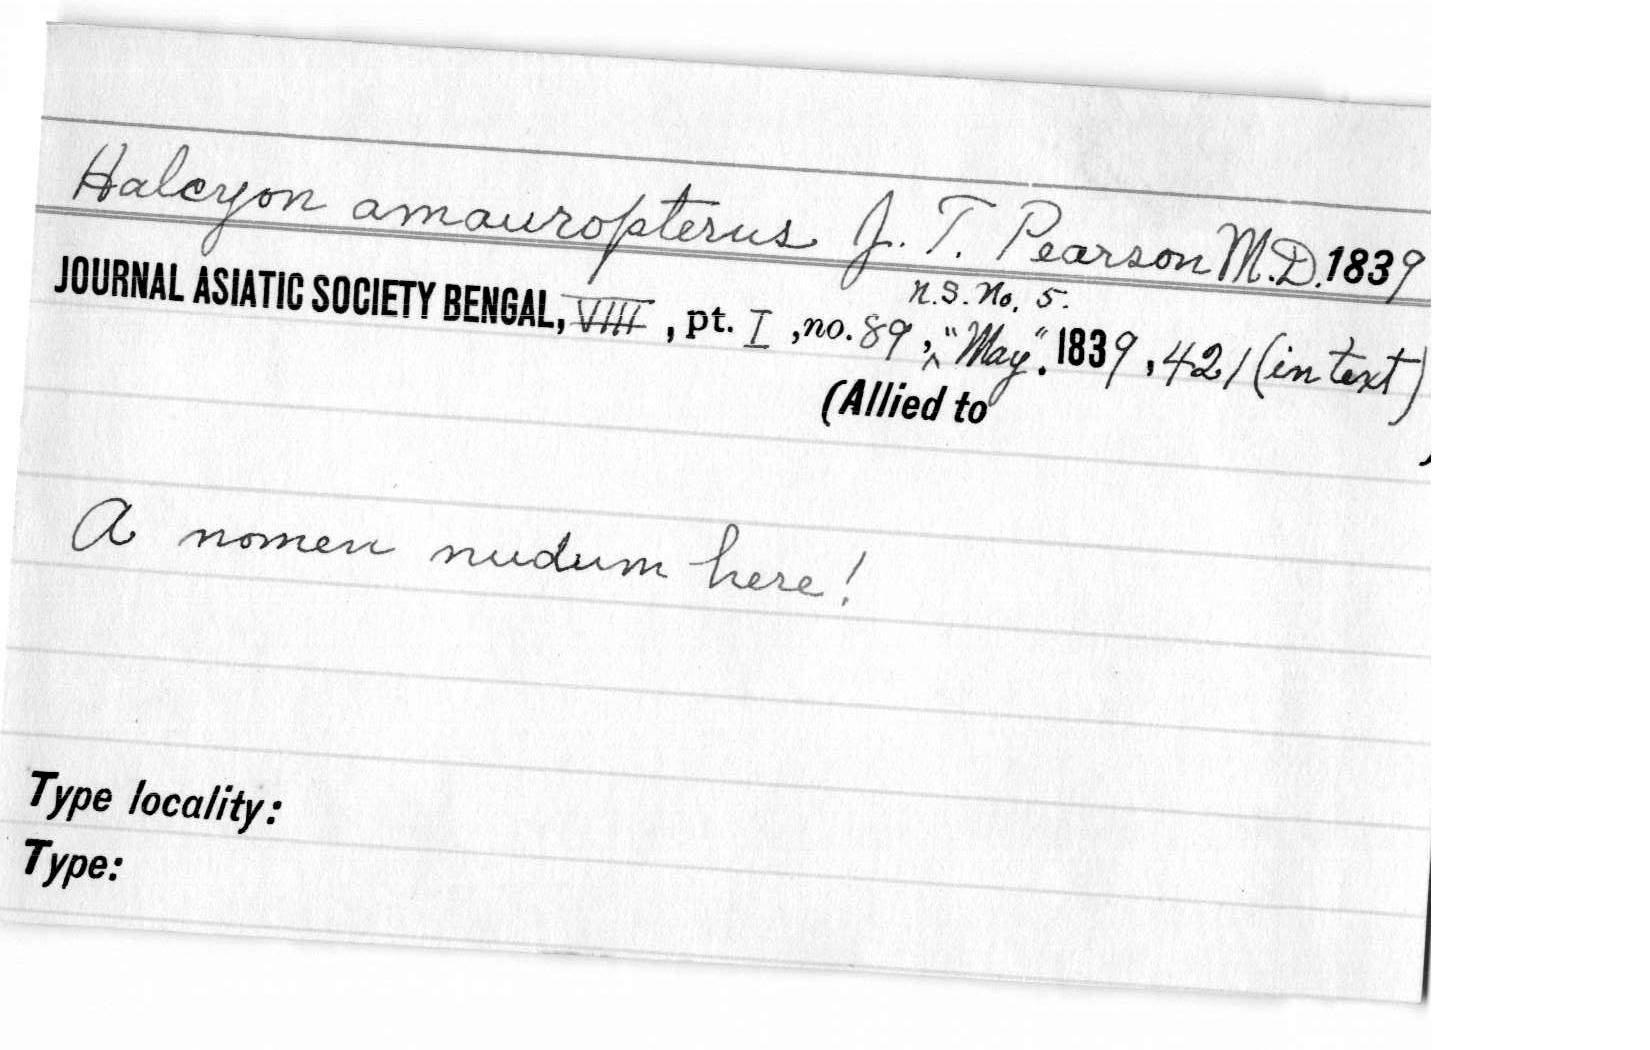 Halcyon amauropterus J. T. Pearson M.D. 1839
n.s. No. 5.
JOURNAL ASIATIC SOCIETY BENGAL, VIII, pt. I, no. 89, ^ "May". 1839, 421 (in text)
(Allied to )
A nomen nudum here!
Type locality:
Type: